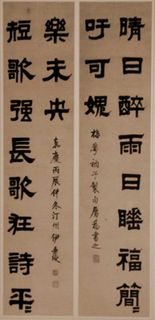 晴日醉雨日睡福簡〻
吁可媿
梅華衲子製句屬為書之
短歌强長歌狂詩平〻
樂未央
嘉慶丙辰仲冬汀州伊秉綬